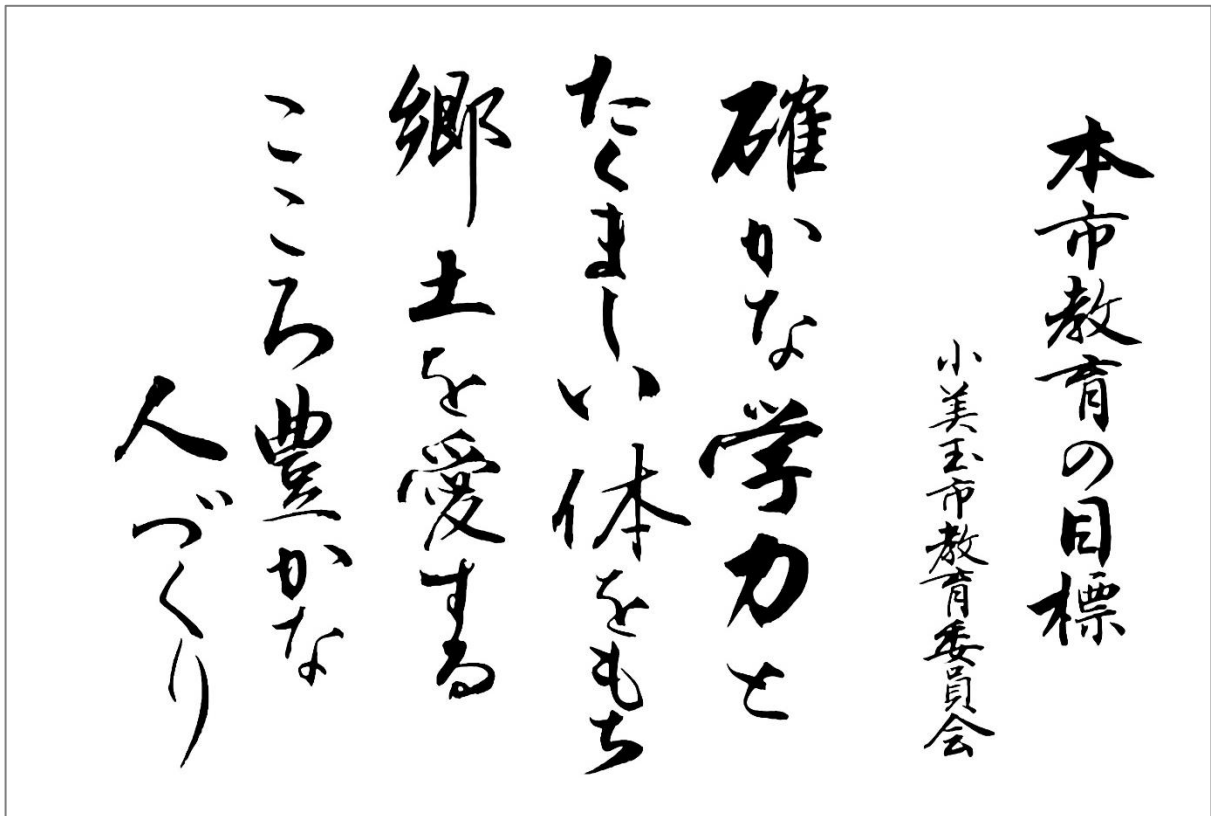 本市教育の目標
小美玉市教育委員会
確かな学力と
たくましい体をもち
郷土を愛する
こころ豊かな
人づくり